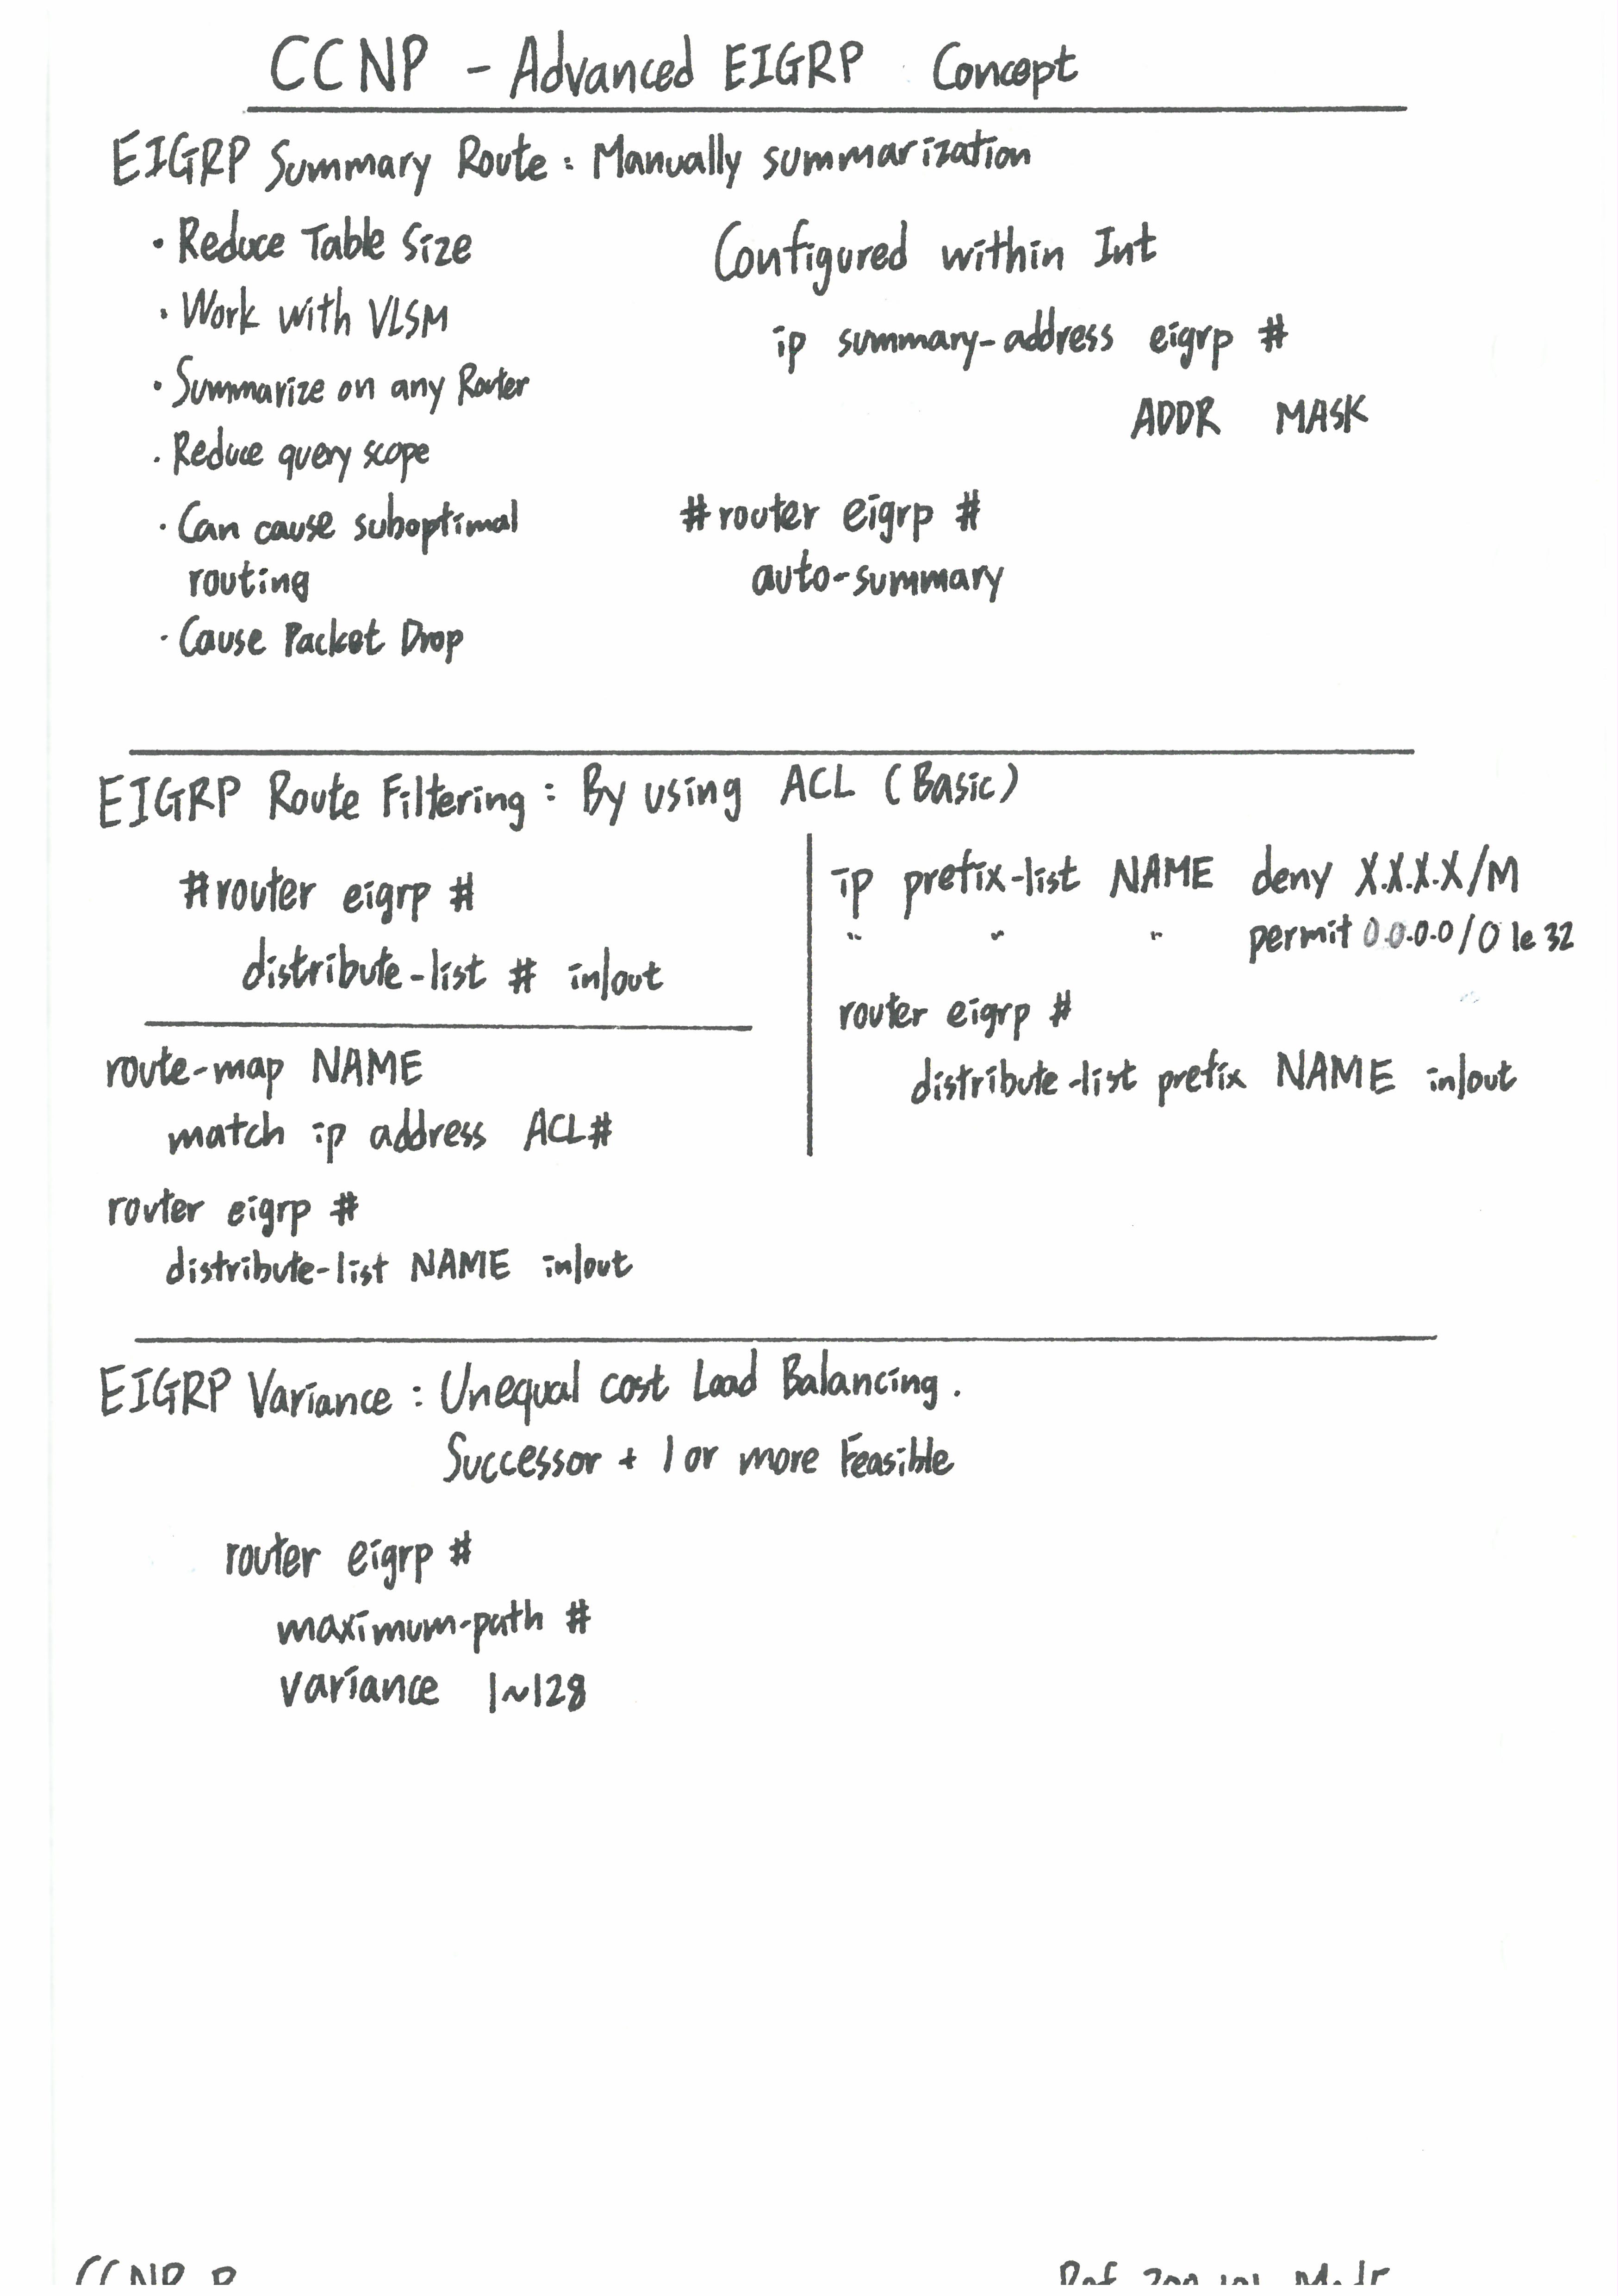 CCNP - Advanced EIGRP Concept
EIGRP Summary Route : Manually summarization
· Reduce Table Size
· Work with VLSM
· Summarize on any Router
· Reduce query scope
· Can cause suboptimal
routing
· Cause Packet Drop
Configured within Int
ip summary-address eigrp #
ADDR MASK
#router eigrp #
auto-summary
EIGRP Route Filtering : By using ACL (Basic)
#router eigrp #
distribute-list # in/out
route-map NAME
match ip address ACL#
router eigrp #
distribute-list NAME in/out
ip prefix-list NAME deny X.X.X.X/M
" " " permit 0.0.0.0/0 le 32
router eigrp #
distribute-list prefix NAME in/out
EIGRP Variance : Unequal cost Load Balancing.
Successor + 1 or more Feasible
router eigrp #
maximum-path #
variance 1~128
CCNP